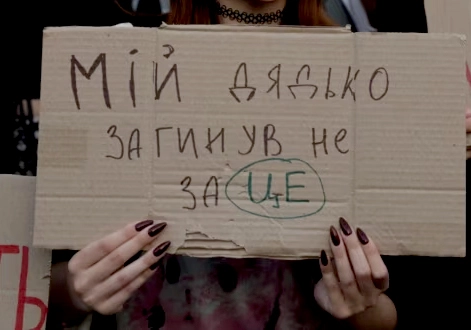 Мій дядько
загинув не
за це
ть